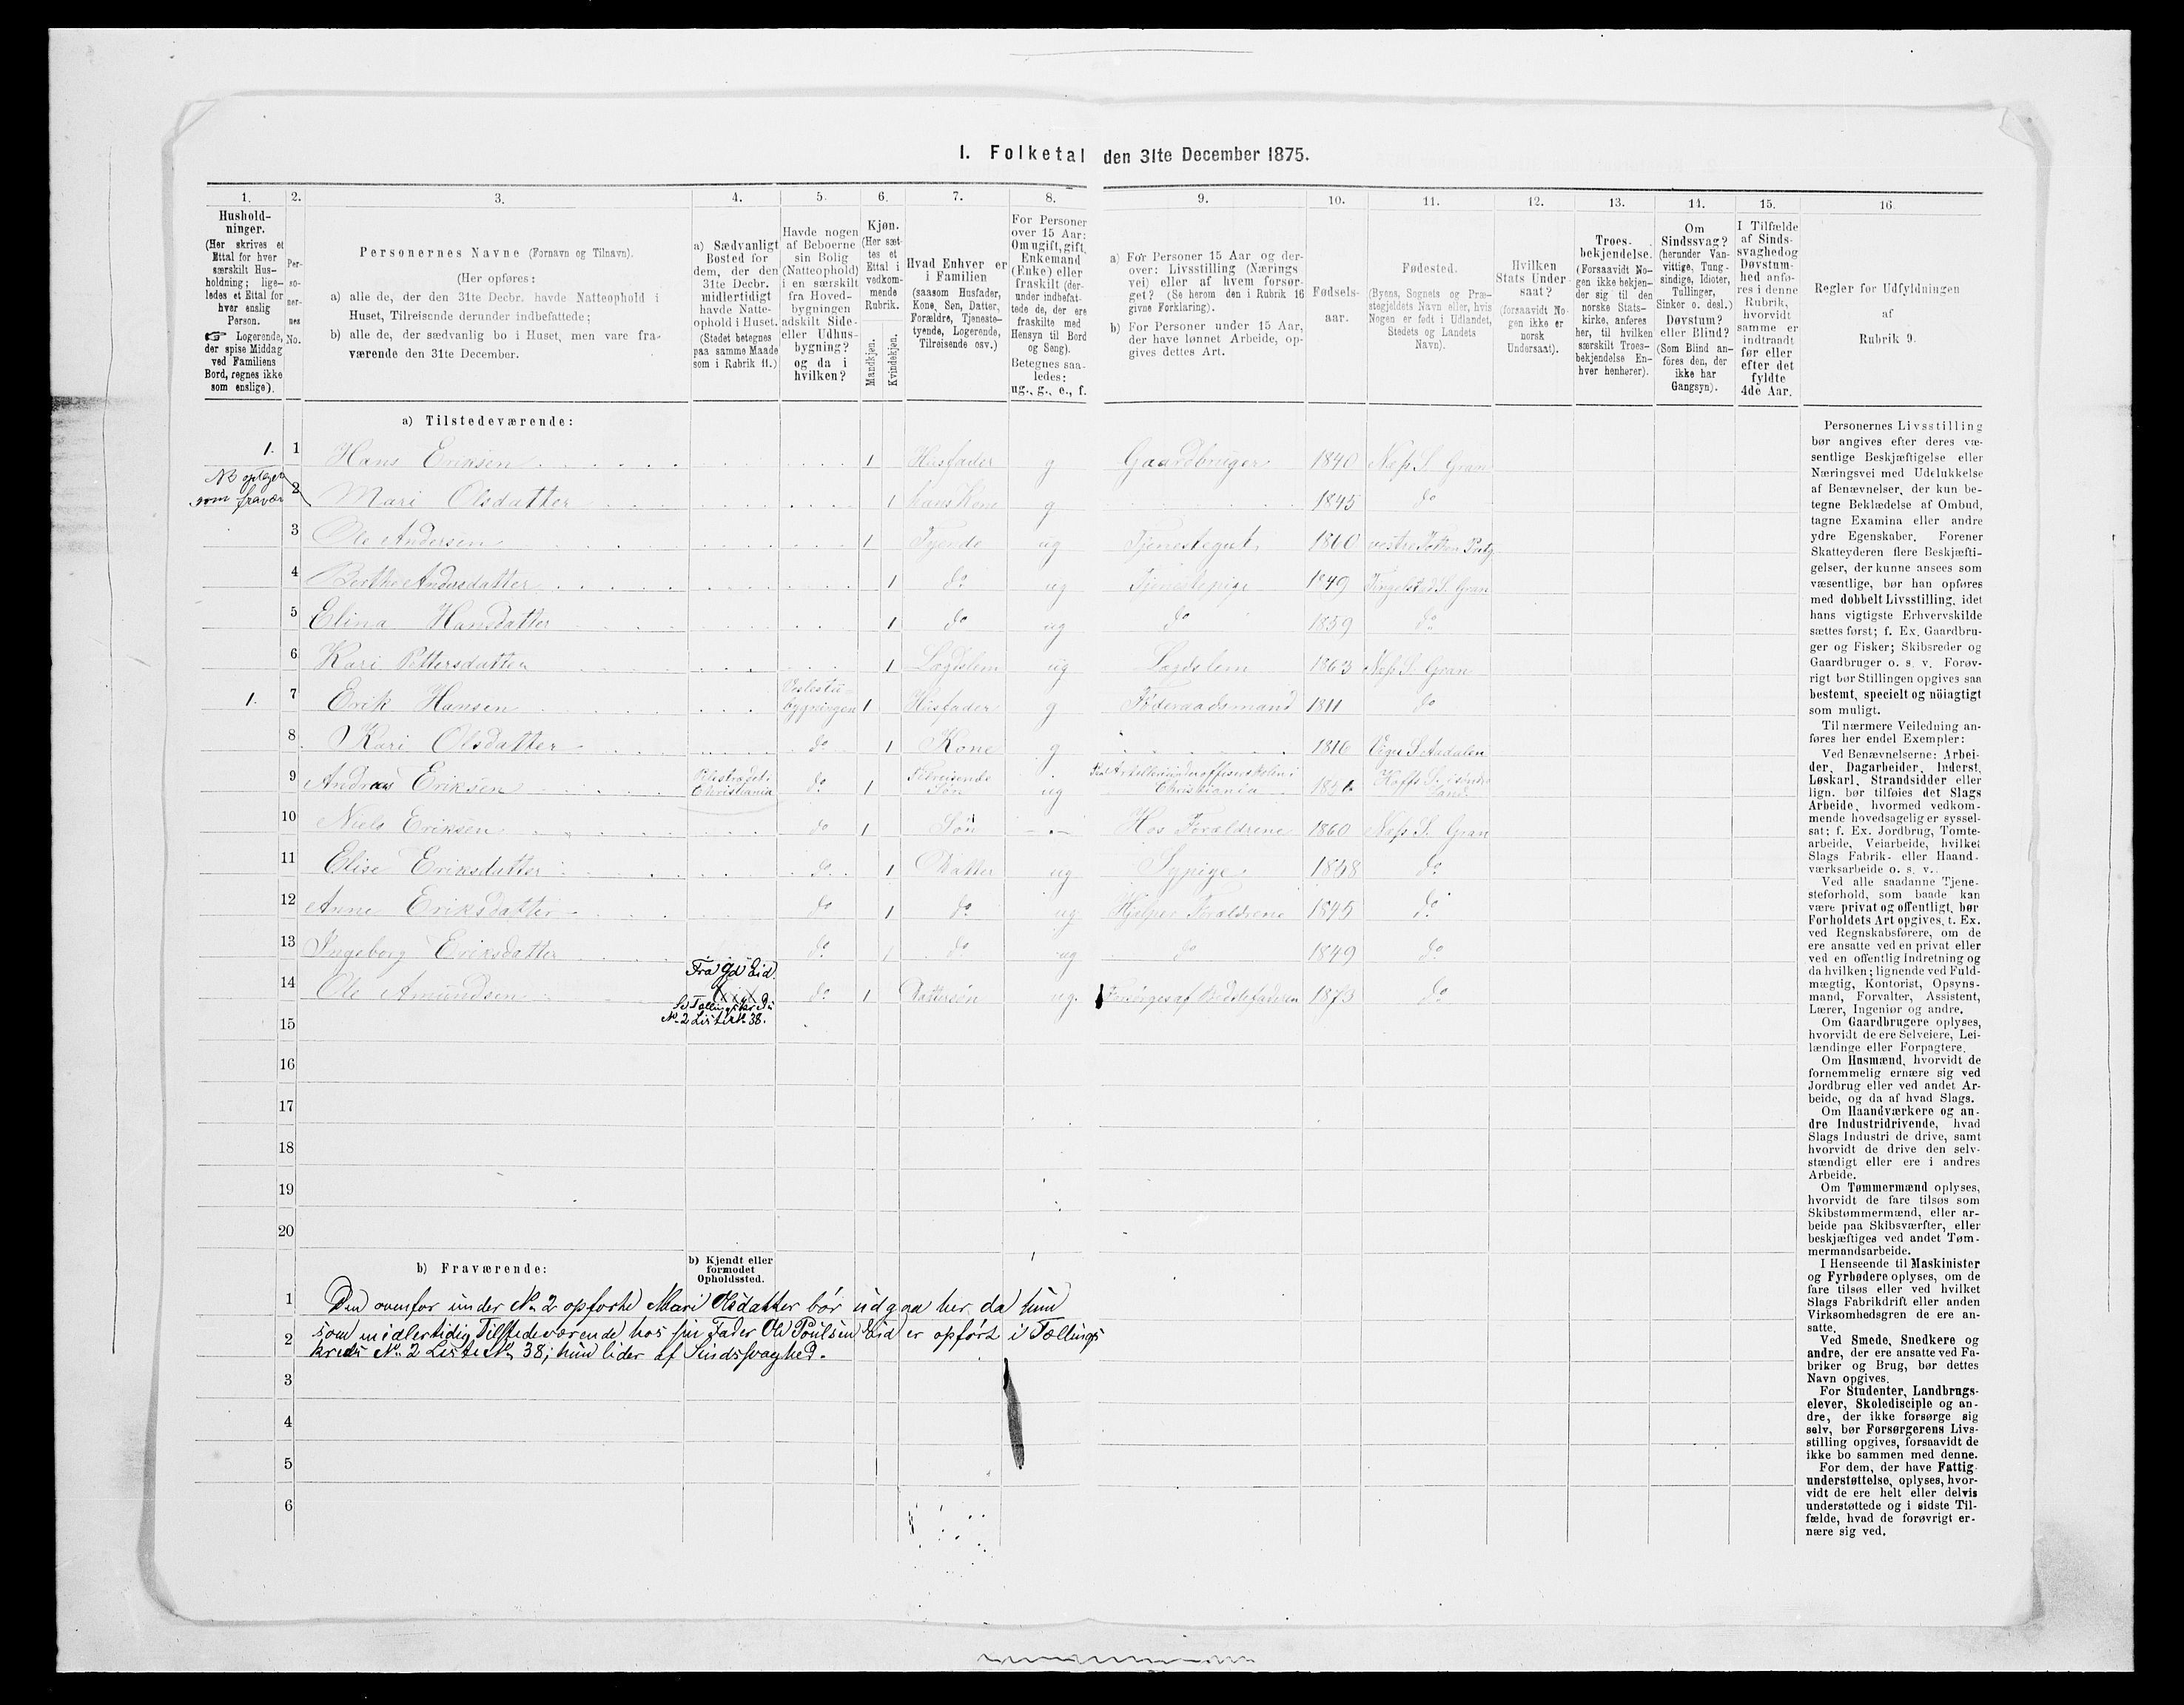 I. Folketal den 31te December 1875.
1. 2. 3. 4. 5. 6. 7. 8. 9. 10. 11. 12. 13. 14. 15. 16.
Hushold-
ninger.
(Her skrives et
Ettal for hver
særskilt Hus-
holdning; lige-
ledes et Ettal for
hver enslig
Person.
☞ Logerende,
der spise Middag
ved Familiens
Bord, regnes ikke
som enslige).
Per-
so-
ner-
nes
No.
Personernes Navne (Fornavn og Tilnavn).
(Her opføres:
a) alle de, der den 31te Decbr. havde Natteophold i
Huset, Tilreisende derunder indbefattede;
b) alle de, der sædvanlig bo i Huset, men vare fra-
værende den 31te December.
a) Sædvanligt
Bosted for
dem, der den
31te Decbr.
midlertidigt
havde Natte-
ophold i Huset.
(Stedet betegnes
paa samme Maade
som i Rubrik 11.)
Havde nogen
af Beboerne
sin Bolig
(Natteophold)
i en særskilt
fra Hoved-
bygningen
adskilt Side-
eller Udhus-
bygning?
og da i
hvilken?
Kjøn.
(Her sæt-
tes et
Ettal i
vedkom-
mende
Rubrik.
Mandkjøn.
Kvindekjøn.
Hvad Enhver er
i Familien
(saasom Husfader,
Kone, Søn, Datter,
Forældre, Tjeneste-
tyende, Logerende,
Tilreisende osv.)
For Personer
over 15 Aar:
Om ugift, gift,
Enkemand
(Enke) eller
fraskilt (der-
under indbefat-
tede de, der ere
fraskilte med
Hensyn til Bord
og Seng).
Betegnes saa-
ledes:
ug., g., e., f.
a) For Personer 15 Aar og der-
over: Livsstilling (Nærings
vei) eller af hvem forsør-
get? (Se herom den i Rubrik 16
givne Forklaring).
b) For Personer under 15 Aar,
der have lønnet Arbeide, op-
gives dettes Art.
Fødsels-
aar.
Fødested.
(Byens, Sognets og Præ-
stegjeldets Navn eller, hvis
Nogen er født i Udlandet,
Stedets og Landets
Navn).
Hvilken
Stats Under-
saat?
(forsaavidt No-
gen ikke er
norsk
Undersaat).
Troes-
bekjendelse.
(Forsaavidt No-
gen ikke bekjen-
der sig til den
norske Stats-
kirke, anføres
her, til hvilken
særskilt Troes-
bekjendelse En-
hver henhører).
Om
Sindssvag?
(herunder Van-
vittige, Tung-
sindige, Idioter,
Tullinger,
Sinker o. desl.)
Døvstum?
eller Blind?
(Som Blind an-
føres den, der
ikke har
Gangsyn).
I Tilfælde
af Sinds-
svaghed og
Døvstum-
hed anfø-
res i denne
Rubrik,
hvorvidt
samme er
indtraadt
før eller
efter det
fyldte
4de Aar.
Regler for Udfyldningen
af
Rubrik 9.
a) Tilstedeværende:
1. 1 Hans Eriksen 1 Husfader g Gaardbruger 1840 Næs S. Gran
NB optaget
som fravær
2 Mari Olsdatter 1 hans Kone g 1845 do
3 Ole Andersen 1 Tyende ug Tjenestegut 1860 vestre Tothen
4 Berthe Andersdatter 1 do ug Tjenestepige 1849 Tingelstad S. Gran
5 Elina Hansdatter 1 do ug do 1859 do
6 Kari Pettersdatter 1 Lægdslem ug Lægdslem 1863 Næs S. Gran
1. 7 Erik Hansen bygningen 1 Husfader g Föderaadsmand 1811 do
8 Kari Olsdatter do 1 Kone g 1816 S. Aadalen
9 Andreas Eriksen Christiania do 1 Tilreisende Søn ug Christiania
10 Niels Eriksen do 1 Søn Hos Forældrene 1860 Næs S. Gran
11 Elise Eriksdatter do 1 Datter ug Sypige 1858 do
12 Anne Eriksdatter do 1 do ug Hjelper Forældrene 1845 do
13 Ingeborg Eriksdatter do 1 do ug do 1849 do
Fra gd Eid.
14 Ole Amundsen do 1 Dattersøn ug. Forsørges af Bedstefaderen 1873 do
Se Tællingskreds
No 2 Liste No 38.
15
16
17
18
19
20
b) Fraværende:
b) Kjendt eller
formodet
Opholdssted.
1 Den ovenfor under No 2 opførte Mari Olsdatter bør udgaa her da hun
2 som midlertidig Tilstedeværende hos sin Fader Ole Poulsen Eid er opført i Tællings
kreds No 2 Liste No 38; hun lider af Sindssvaghed.
3
4
5
6
Personernes Livsstilling
bør angives efter deres væ-
sentlige Beskjæftigelse eller
Næringsvei med Udelukkelse
af Benævnelser, der kun be-
tegne Beklædelse af Ombud,
tagne Examina eller andre
ydre Egenskaber. Forener
Skatteyderen flere Beskjæfti-
gelser, der kunne ansees som
væsentlige, bør han opføres
med dobbelt Livsstilling, idet
hans vigtigste Erhvervskilde
sættes først; f. Ex. Gaardbru-
ger og Fisker; Skibsreder og
Gaardbruger o. s. v. Forøv-
rigt bør Stillingen opgives saa
bestemt, specielt og nöiagtigt
som muligt.
Til nærmere Veiledning an-
føres her endel Exempler:
Ved Benævnelserne: Arbei-
der, Dagarbeider, Inderst,
Løskarl, Strandsidder eller
lign. bør tilføies det Slags
Arbeide, hvormed vedkom-
mende hovedsagelig er syssel-
sat; f. Ex. Jordbrug, Tomte-
arbeide, Veiarbeide, hvilket
Slags Fabrik- eller Haand-
værksarbeide o. s. v.
Ved alle saadanne Tjene-
steforhold, som baade kan
være privat og offentligt, bør
Forholdets Art opgives, t. Ex.
ved Regnskabsførere, om de
ere ansatte ved en privat eller
ved en offentlig Indretning og
da hvilken; lignende ved Fuld-
mægtig, Kontorist, Opsyns-
mand, Forvalter, Assistent,
Lærer, Ingeniør og andre.
Om Gaardbrugere oplyses,
hvorvidt de ere Selveiere, Lei-
lændinge eller Forpagtere.
Om Husmænd, hvorvidt de
fornemmelig ernære sig ved
Jordbrug eller ved andet Ar-
beide, og da af hvad Slags.
Om Haandværkere og an-
dre Industridrivende, hvad
Slags Industri de drive, samt
hvorvidt de drive den selv-
stændigt eller ere i andres
Arbeide.
Om Tømmermænd oplyses,
hvorvidt de fare tilsøs som
Skibstømmermænd, eller ar-
beide paa Skibsværfter, eller
beskjæftiges ved andet Tøm-
mermandsarbeide.
I Henseende til Maskinister
og Fyrbødere oplyses, om de
fare tilsøs eller ved hvilket
Slags Fabrikdrift eller anden
Virksomhedsgren de ere an-
satte.
Ved Smede, Snedkere og
andre, der ere ansatte ved Fa-
briker og Brug, bør dettes
Navn opgives.
For Studenter, Landbrugs-
elever, Skoledisciple og an-
dre, der ikke forsørge sig
selv, bør Forsørgerens Livs-
stilling opgives, forsaavidt de
ikke bo sammen med denne.
For dem, der have Fattig-
understøttelse, oplyses, hvor-
vidt de ere helt eller delvis
understøttede og i sidste Til-
fælde, hvad de forøvrigt er-
nære sig ved.